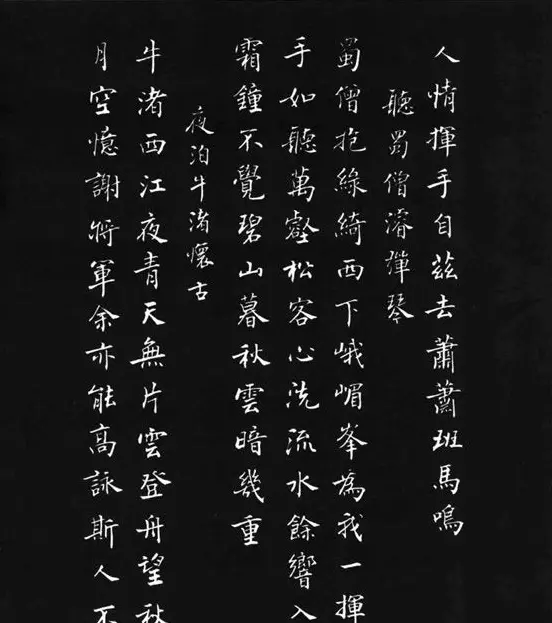 人情揮手自茲去蕭蕭班馬鳴
聽蜀僧濬彈琴
蜀僧抱綠綺西下峨嵋峯為我一揮
手如聽萬壑松客心洗流水餘響入
霜鐘不覺碧山暮秋雲暗幾重
夜泊牛渚懷古
牛渚西江夜青天無片雲登舟望秋
月空憶謝將軍余亦能高詠斯人不